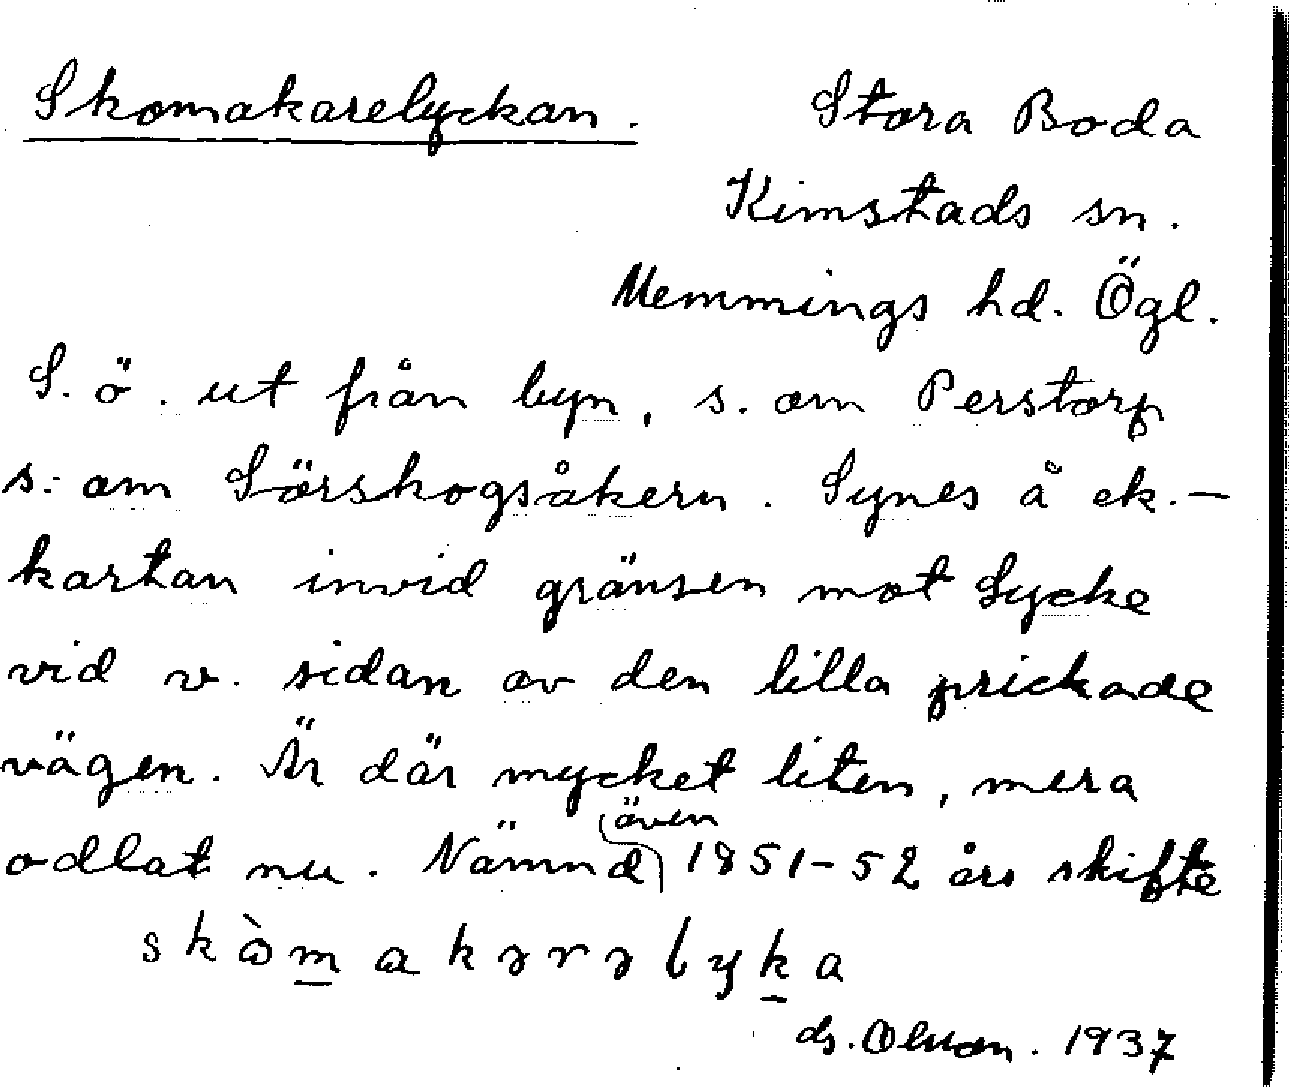 Skomakarelyckan. Stora Boda
Kimstads sn.
Memmings hd. Ögl.
S. ö. ut från byn, s. om Perstorp
s. om Sörskogsåkern. Synes å ek.-
kartan invid gränsen mot Lycke
vid v. sidan av den lilla prickade
vägen. Är där mycket liten, mera
odlat nu. Nämnd även 1851-52 års skifte
skòmakərəlyka
Olsson. 1937